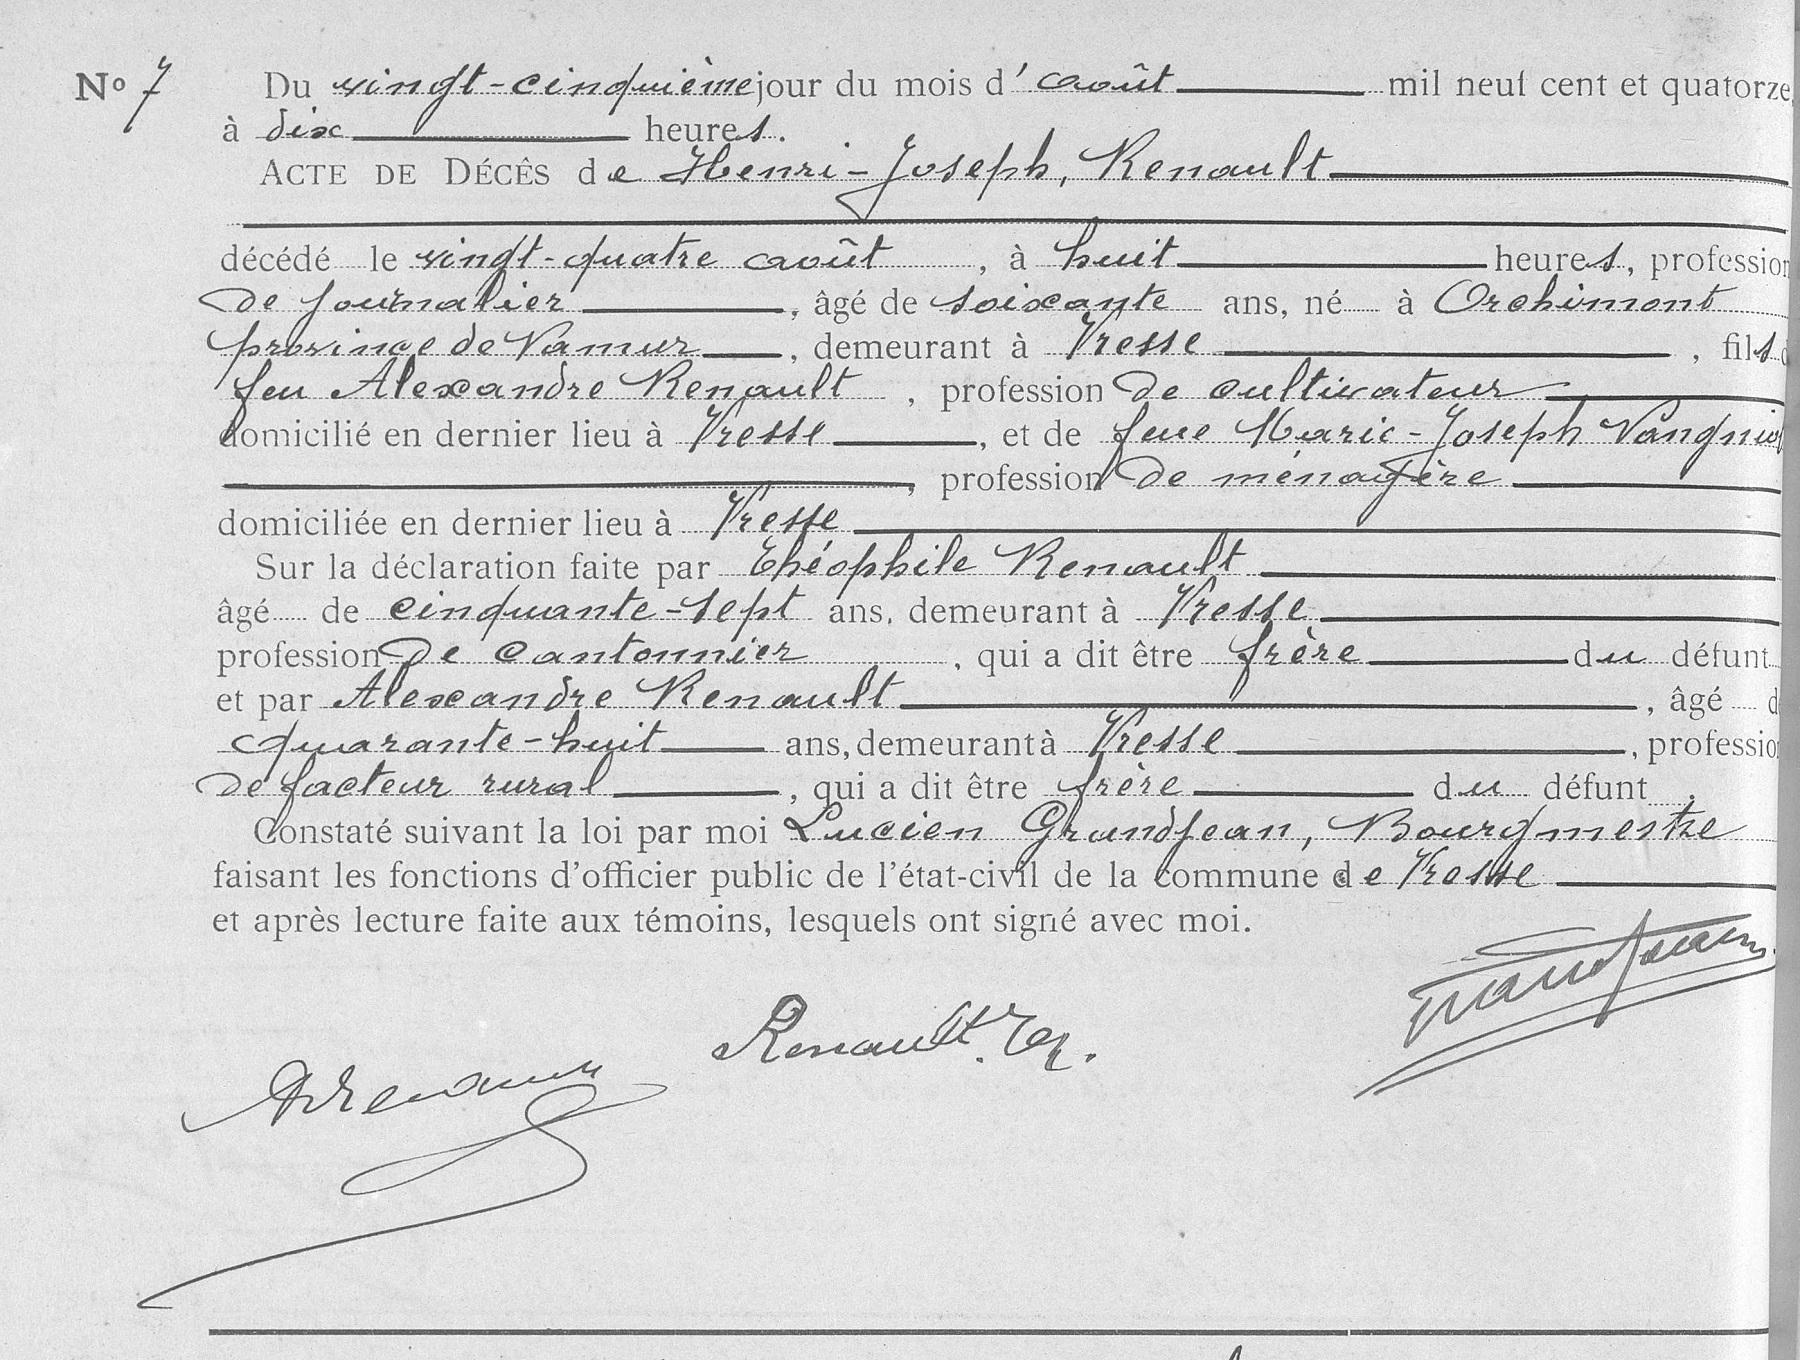 Nº 7 Du vingt-cinquième jour du mois d'août mil neuf cent et quatorze,
à dix heures.
ACTE DE DÉCÈS de Henri-Joseph, Renault
décédé le vingt-quatre août, à huit heures, profession
de journalier, âgé de soixante ans, né à Orchimont
province de Namur, demeurant à Vresse, fils d
feu Alexandre Renault, profession de cultivateur
domicilié en dernier lieu à Vresse, et de feue Marie-Joseph
, profession de ménagère
domiciliée en dernier lieu à Vresse
Sur la déclaration faite par Théophile Renault
âgé de cinquante-sept ans, demeurant à Vresse
profession de cantonnier, qui a dit être frère du défunt
et par Alexandre Renault, âgé de
quarante-huit ans, demeurant à Vresse, profession
de facteur rural, qui a dit être frère du défunt.
Constaté suivant la loi par moi Lucien Grandjean, Bourgmestre
faisant les fonctions d'officier public de l'état-civil de la commune de Vresse
et après lecture faite aux témoins, lesquels ont signé avec moi.
Grandjean
Renault